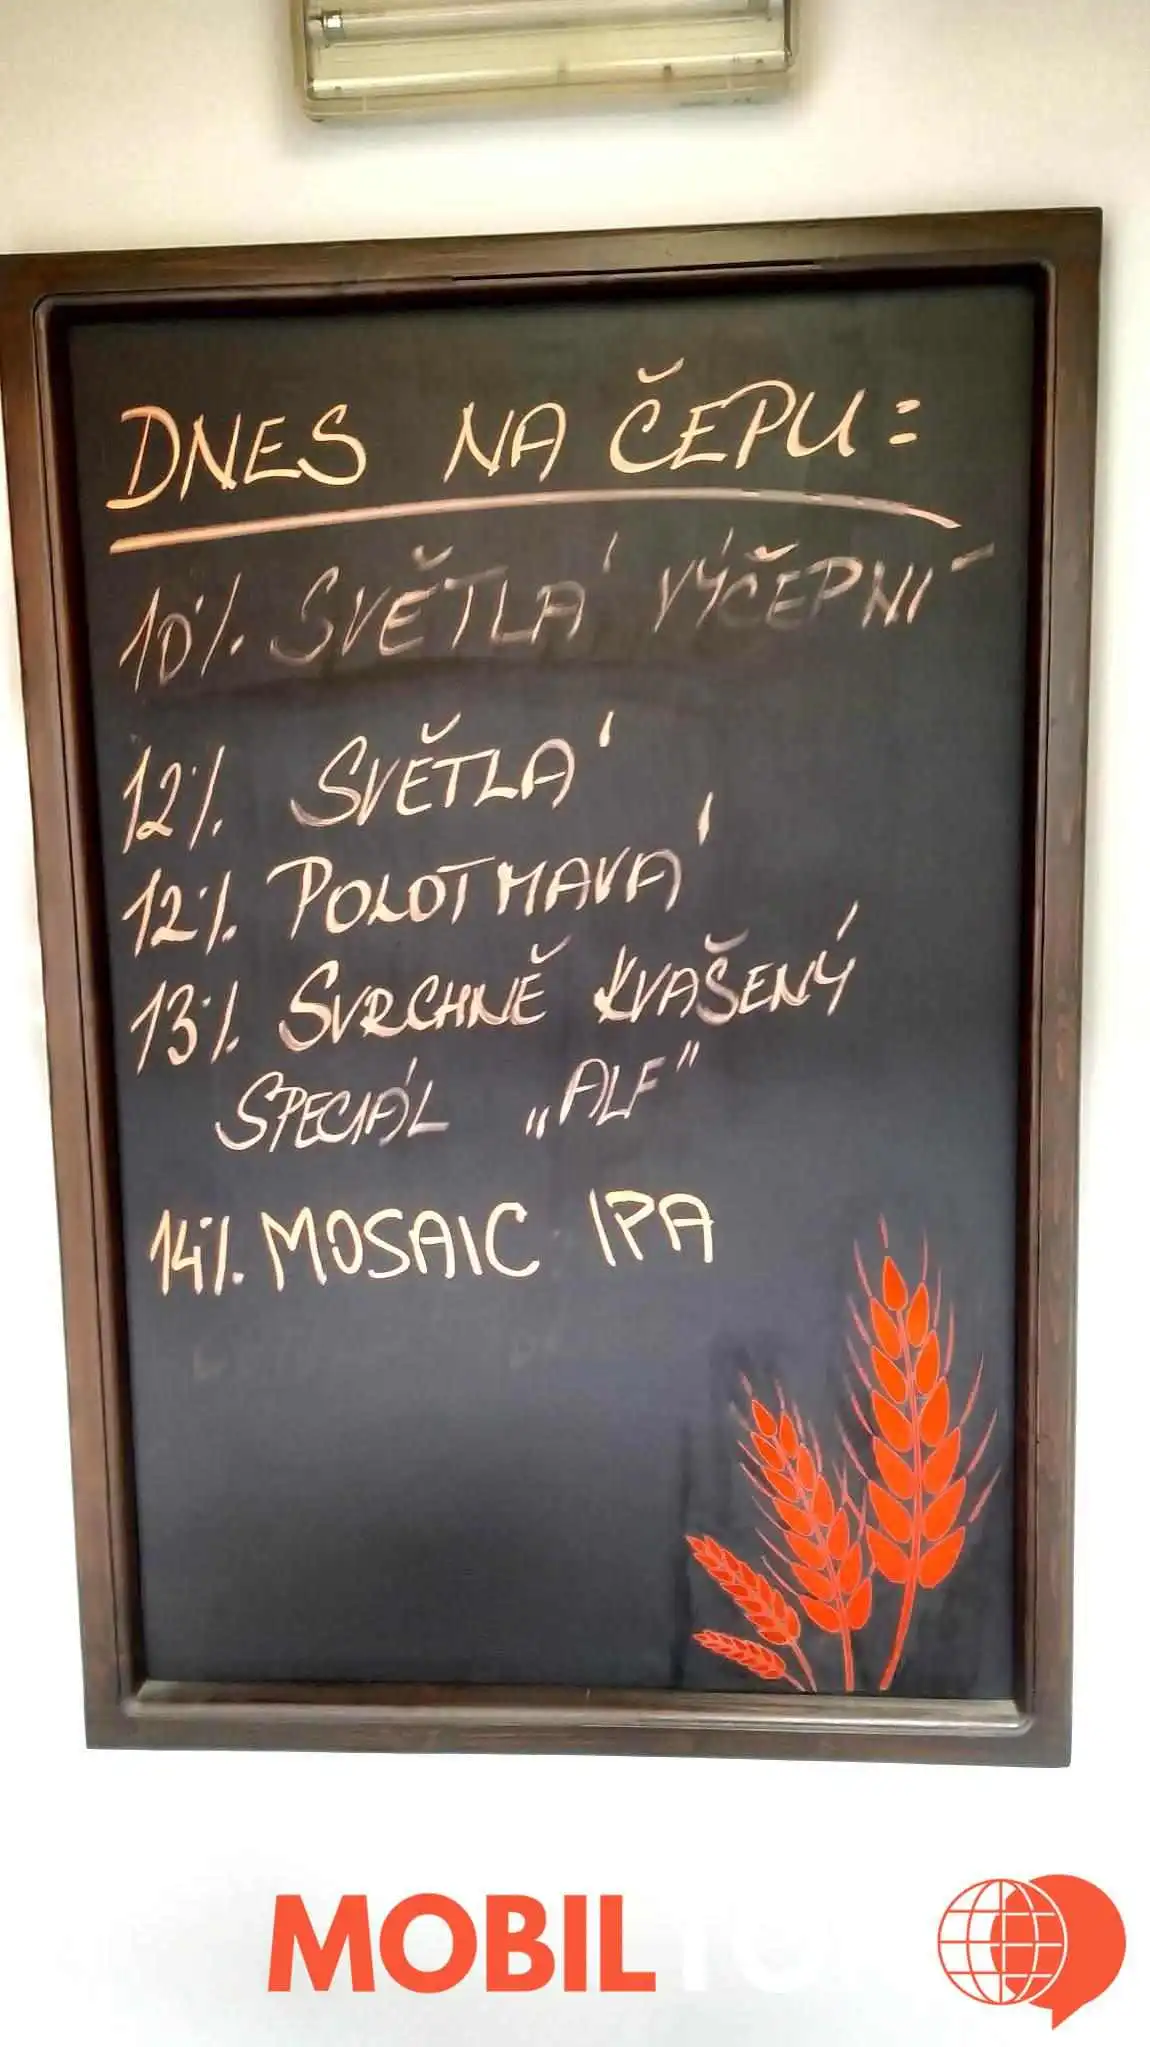 DNES NA ČEPU:
10% SVĚTLÁ VÝČEPNÍ
12% SVĚTLÁ
12% POLOTMAVÁ
13% SVRCHNĚ KVAŠENÝ
SPECIÁL „ALF"
14% MOSAIC IPA
MOBIL